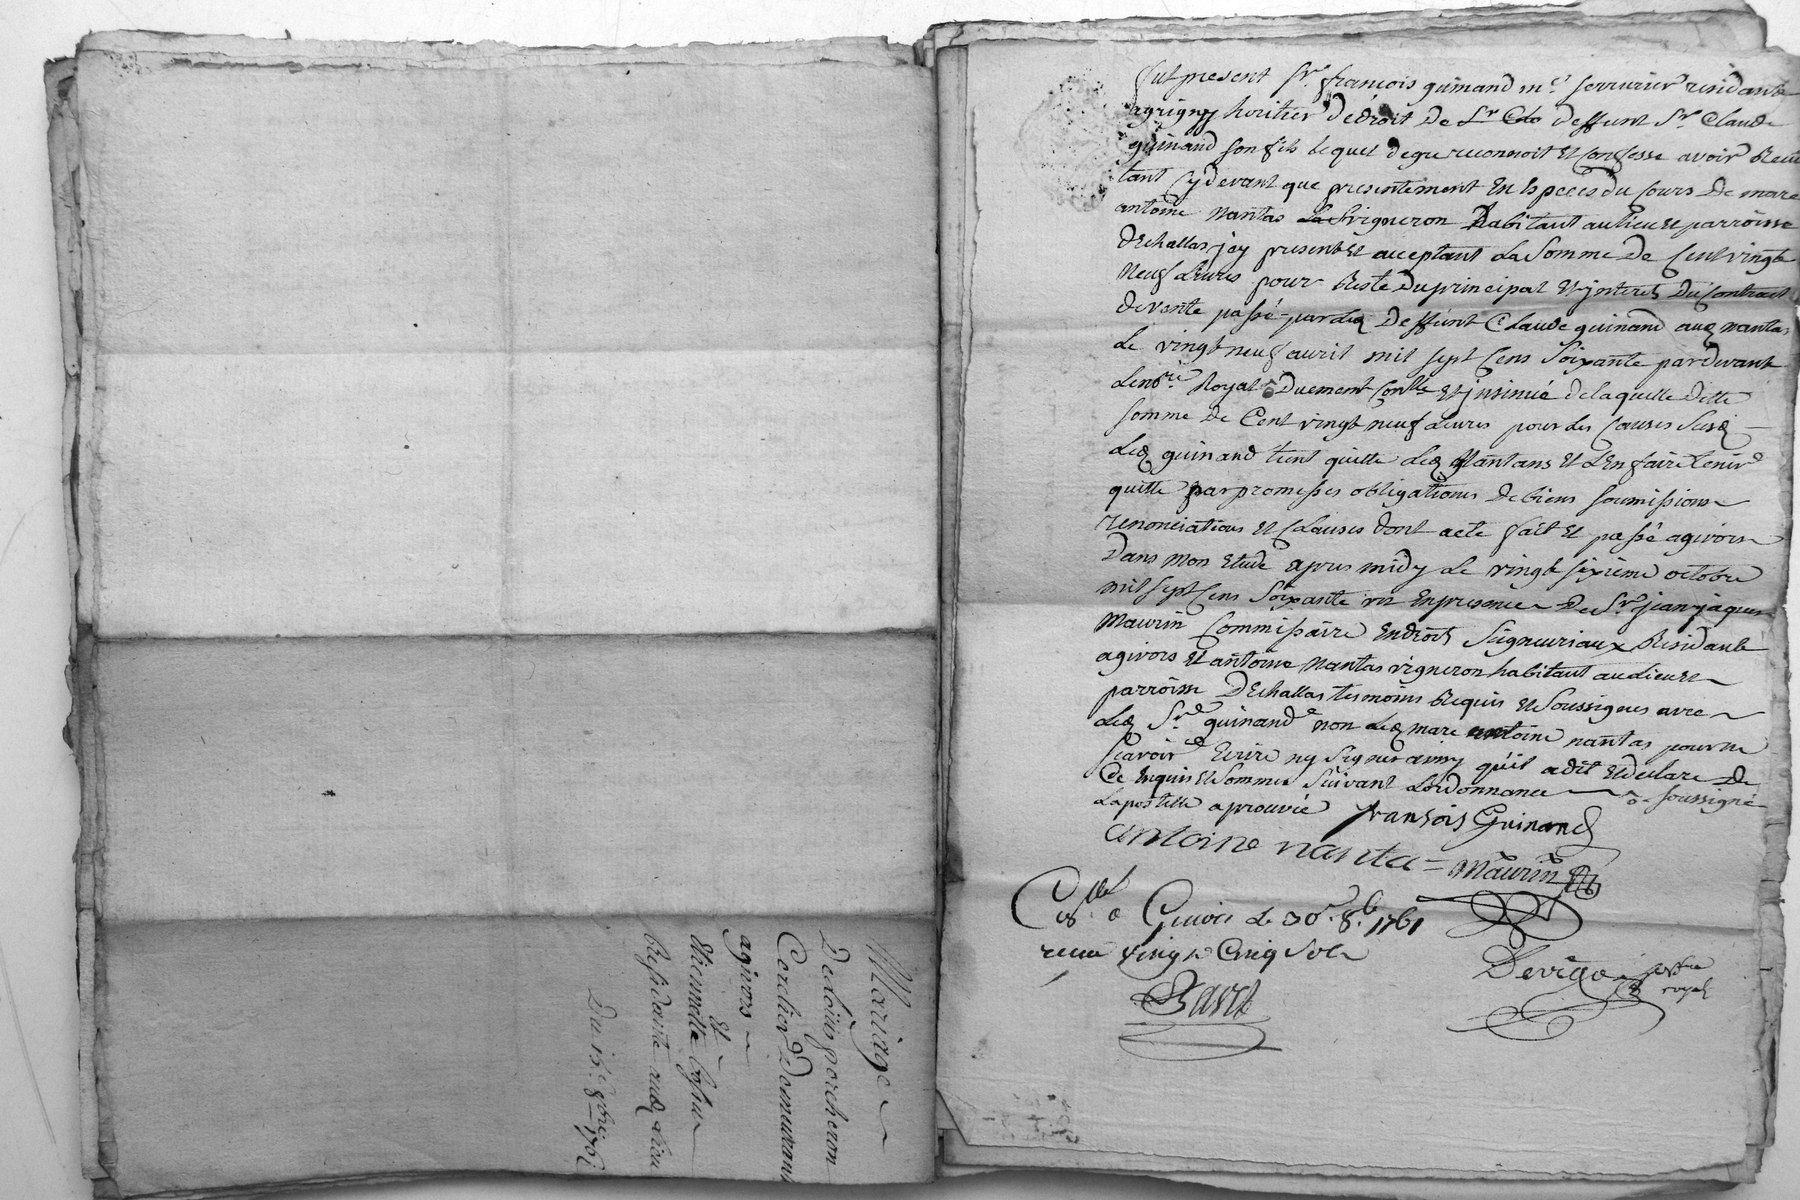 Mariage
De Loüis porcheron
Cordier Demeurant
agivors
Et
Etiennette
Ressidante aud lieu
Du 13e 8bre 1761
fut present Sr françois guinand me serrurier residant
agrigny heritier de droit de Sr Cla deffunt Sr Claude
guinand son fils lequel degré reconnoit et confesse avoir Receu
tant cydevant que presentement en Especes du cours de marc
antoine nantas vigneron habitant au lieu et parroisse
dEchallas jcy present et acceptant La Somme de Cent vingt
neuf Livres pour Reste du principal et jnterets du Contract
de vente passé par led deffunt Claude guinand aud nantas
Le vingt neuf avril mil sept Cens Soixante pardevant
Le nore Royal duement Conllé et jnsinué de laquelle ditte
somme de Cent vingt neuf Livres pour Les Causes Susd
Led guinand tient quitte Led Nantas et dEn faire tenir
quitte par promesses obligations de biens soumissions
renonciations et Clauses dont acte fait et passé agivors
dans mon Etude apres midy Le vingt sixieme octobre
mil sept Cens Soixante un En presence de Sr jean jaques
Maurin Commissaire En droits Seigneuriaux Residant
agivors et antoine nantas vigneron habitant au lieu et
parroisse dEchallas tesmoins Requis et Soussignes avec
Led Sr guinand non Led marc antoine nantas pour ne
scavoir Ecrire ny Signer ainsy quil a dit et declare de
ce Enquis et Sommé Suivant Lordonnance soussigné
Lapostille aprouvée fransois Guinand
antoine nanta Maurin
Cllé a Givors le 30e 8b 1761
receu vingt Cinq Sols
Devige nore
royal